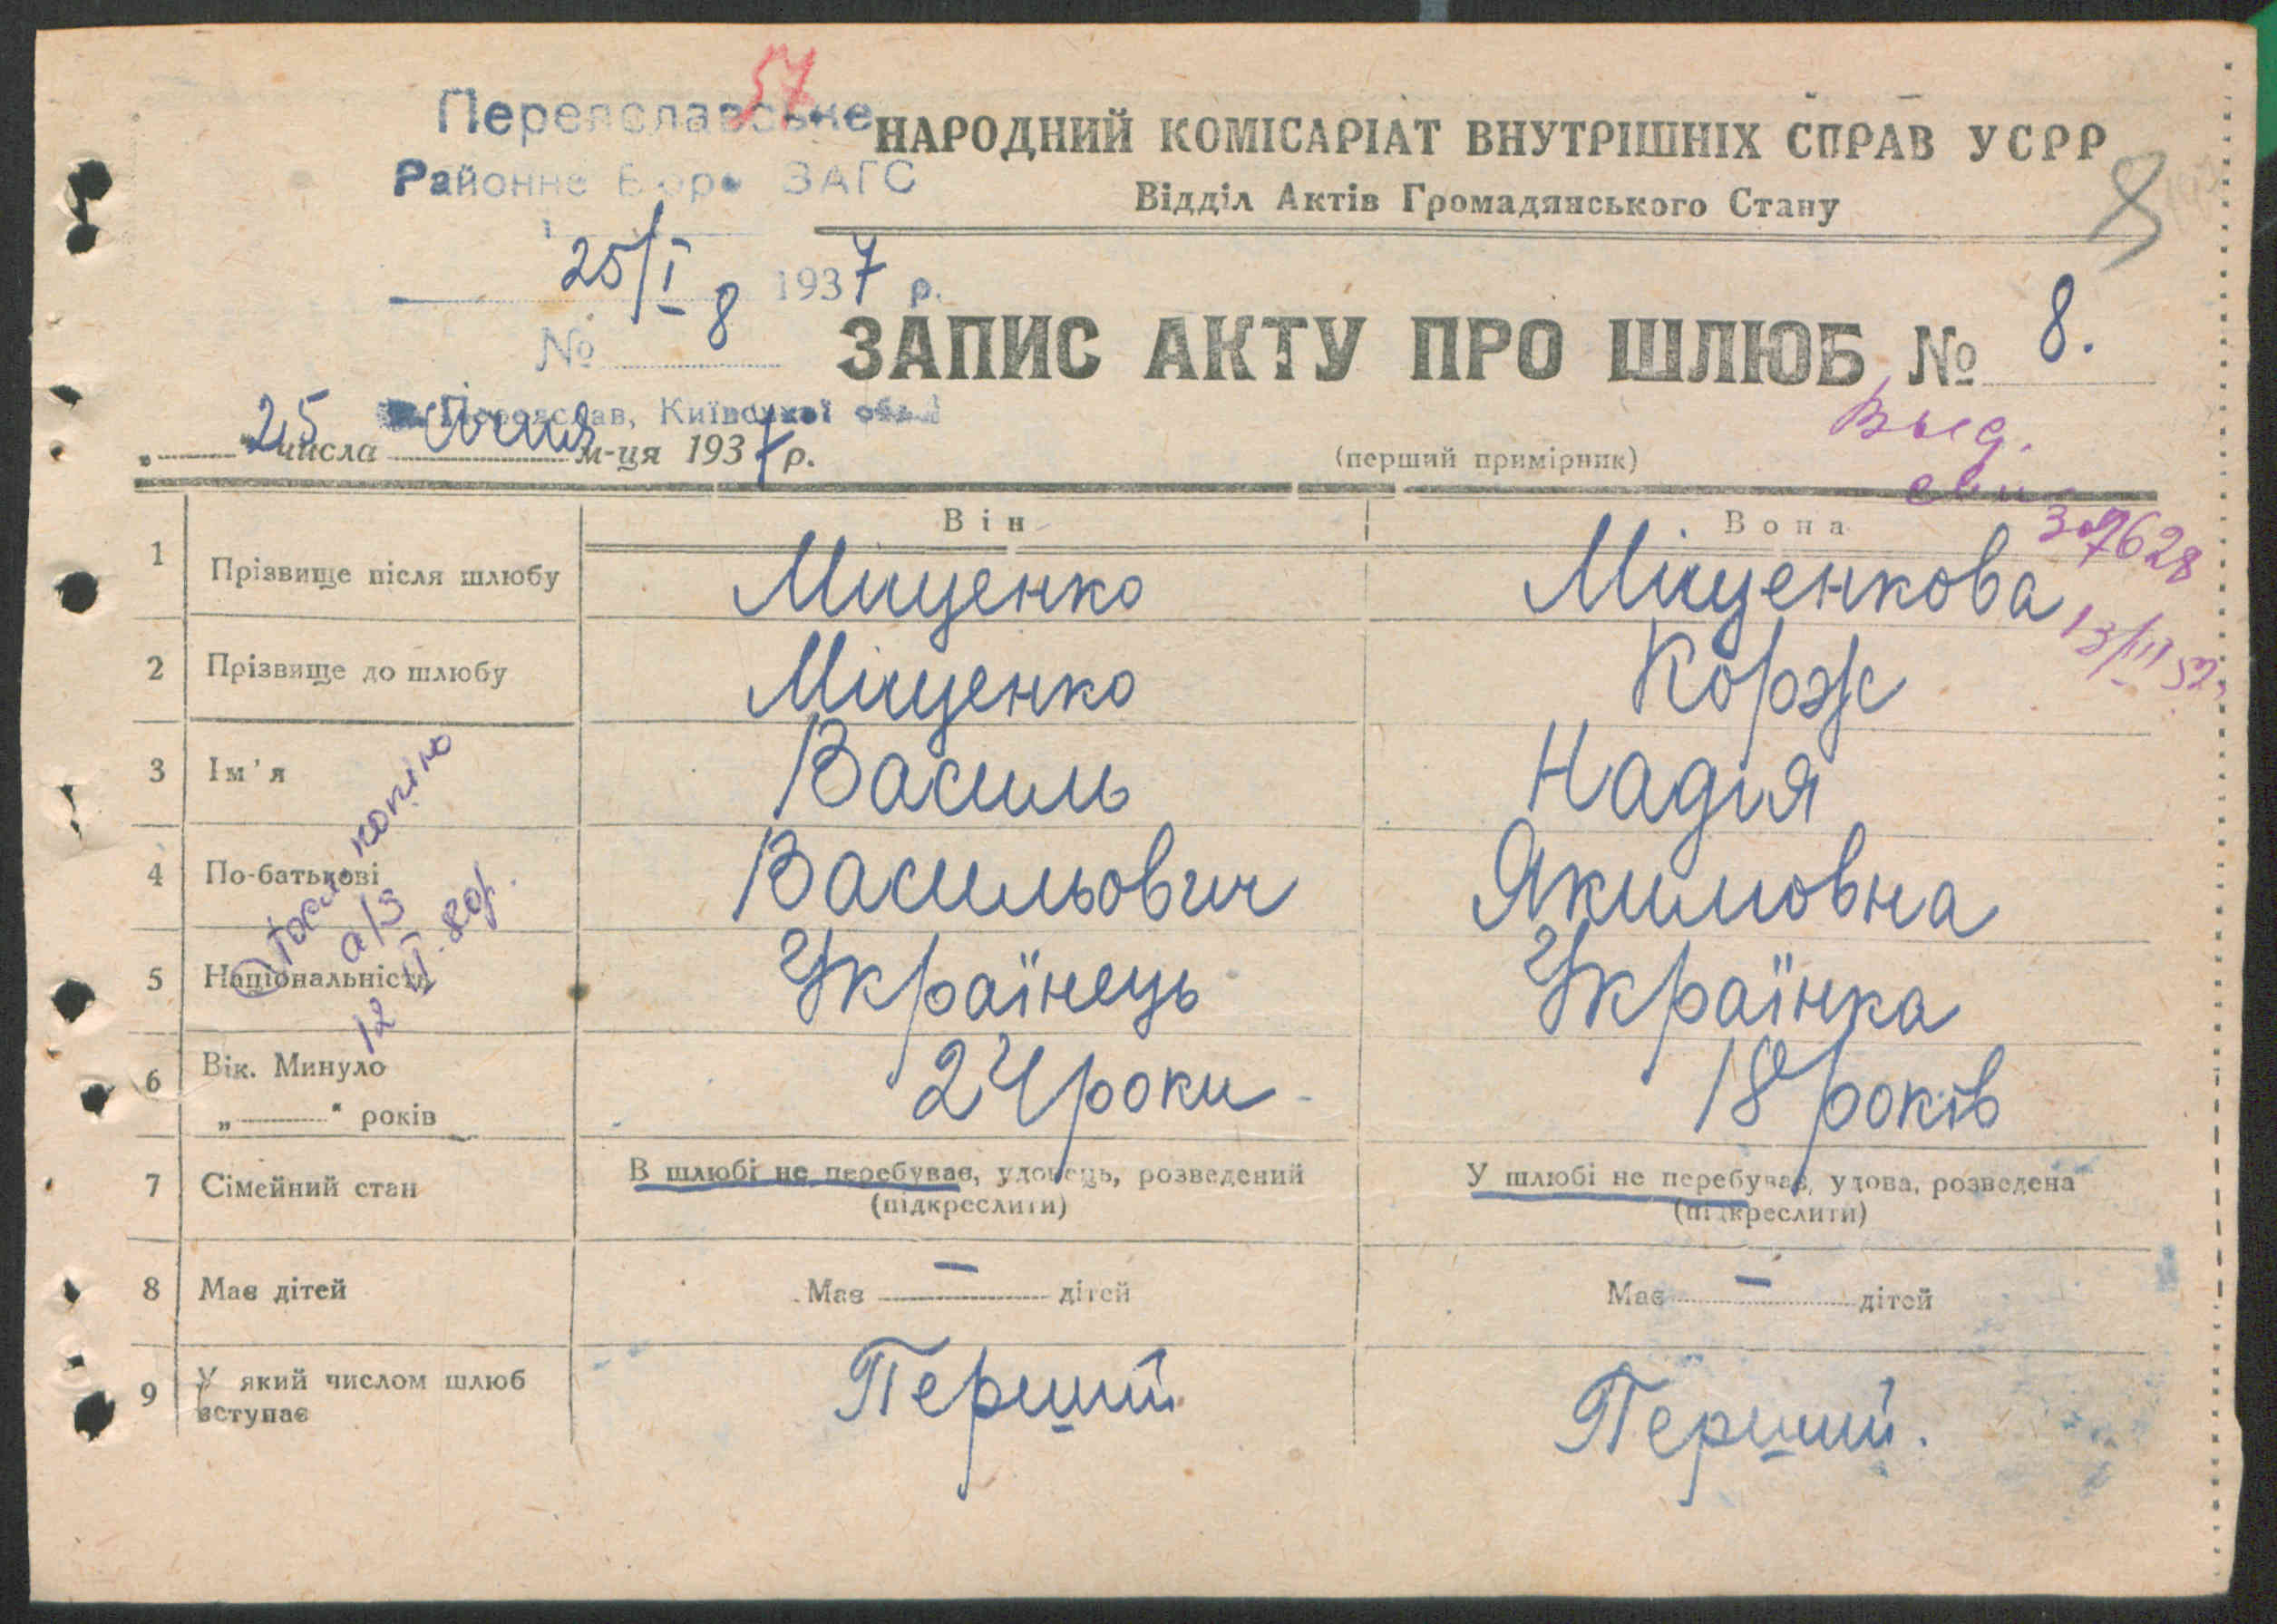 57
Переяславське
Районне Бюро ЗАГС
25/I 1937 р.
№ 8
м. Переяслав, Київської обл.
НАРОДНИЙ КОМІСАРІАТ ВНУТРІШНІХ СПРАВ УСРР
Відділ Актів Громадянського Стану
8
ЗАПИС АКТУ ПРО ШЛЮБ № 8.
„25" числа січня м-ця 1937 р.
(перший примірник)
Выд.
свид.
307628
13/III 52
Він Вона
1 Прізвище після шлюбу Міщенко Міщенкова
2 Прізвище до шлюбу Міщенко Корж
3 Ім'я Василь Надія
4 По-батькові Васильович Якимовна
5 Національність Українець Українка
6 Вік. Минуло „ " років 24 роки 18 років
7 Сімейний стан В шлюбі не перебував, удовець, розведений (підкреслити) У шлюбі не перебував, удова, розведена (підкреслити)
8 Має дітей Має — дітей Має — дітей
9 У який числом шлюб вступає Перший Перший.
копию
а/з